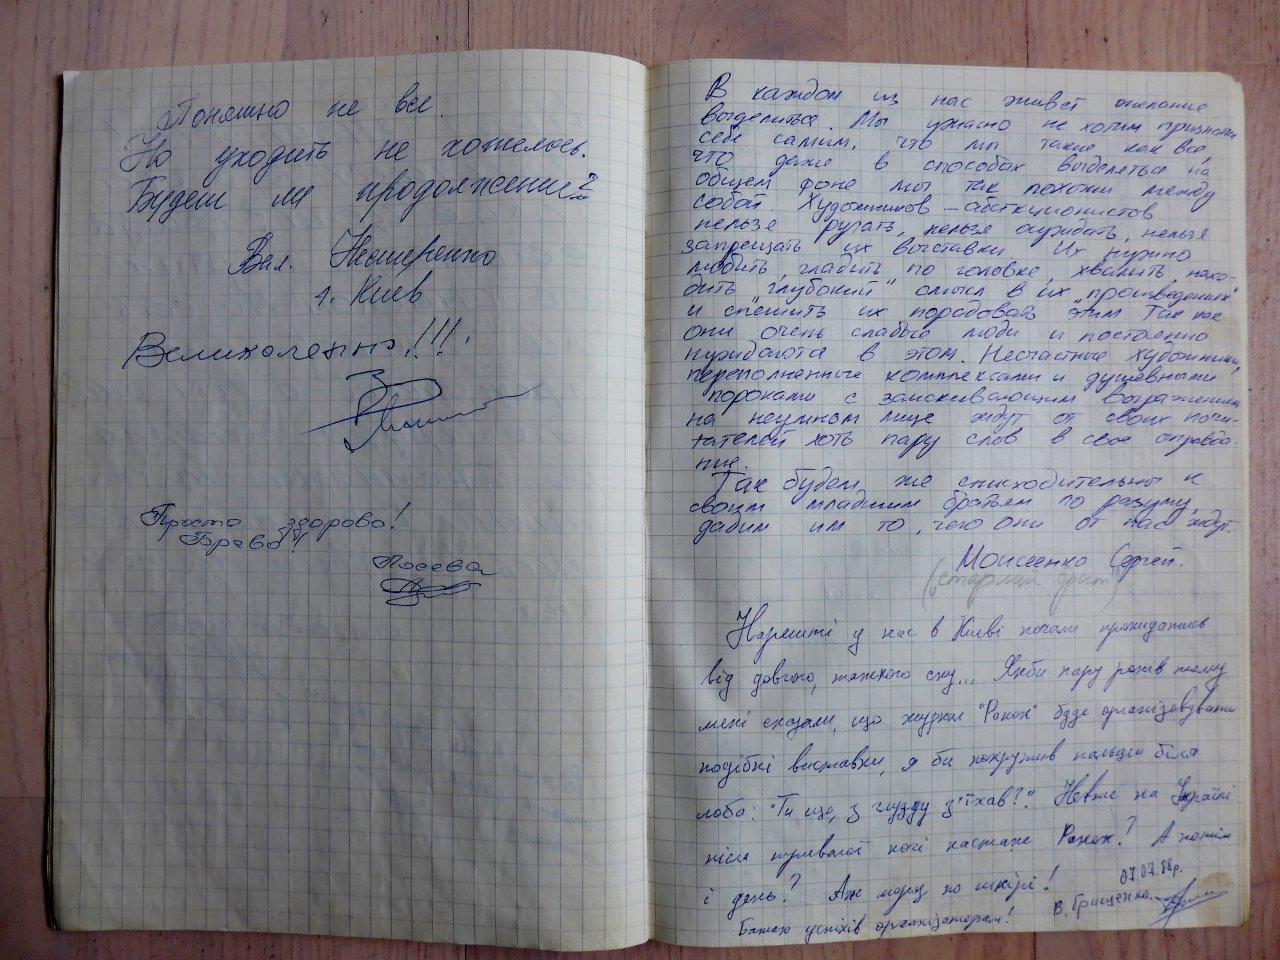 Понятно не все.
Но уходить не хотелось.
Будет ли продолжение?
Вал. Нестеренко
г. Киев
Великолепно!!!
Просто здорово!
Браво!
Лосева
В каждом из нас живет желание
выделиться. Мы ужасно не хотим признать
себе самим, что мы такие как все,
что даже в способах выделиться на
общем фоне мы так похожи между
собой. Художников – абсткционистов
нельзя ругать, нельзя осуждать, нельзя
запрещать их выставки. Их нужно
любить, гладить по головке, хвалить, нахо-
дить "глубокий" смысл в их "произведениях"
и спешить их порадовать этим. Так как
они очень слабые люди и постоянно
нуждаются в этом. Несчастные художники,
переполненные комплексами и душевными
пороками с заискивающим выражением
на неумном лице ждут от своих почи-
тателей хоть пару слов в свое оправда-
ние.
Так будем же снисходительны к
своим младшим братьям по разуму,
дадим им то, чего они от нас ждут.
Моисеенко Сергей.
(старший брат)
Нарешті у нас в Києві почали прокидатись
від довгого, тяжкого сну... Якби пару років тому
мені сказали, що журнал "Ранок" буде організовувати
подібні виставки, я би покрутив пальцем біля
лоба: "Ти що, з глузду з'їхав?". Невже на Україні
після тривалої ночі настане Ранок? А потім
і день? Аж мороз по шкірі!
07.07.88р.
Бажаю успіхів організаторам!
В. Грищенко.